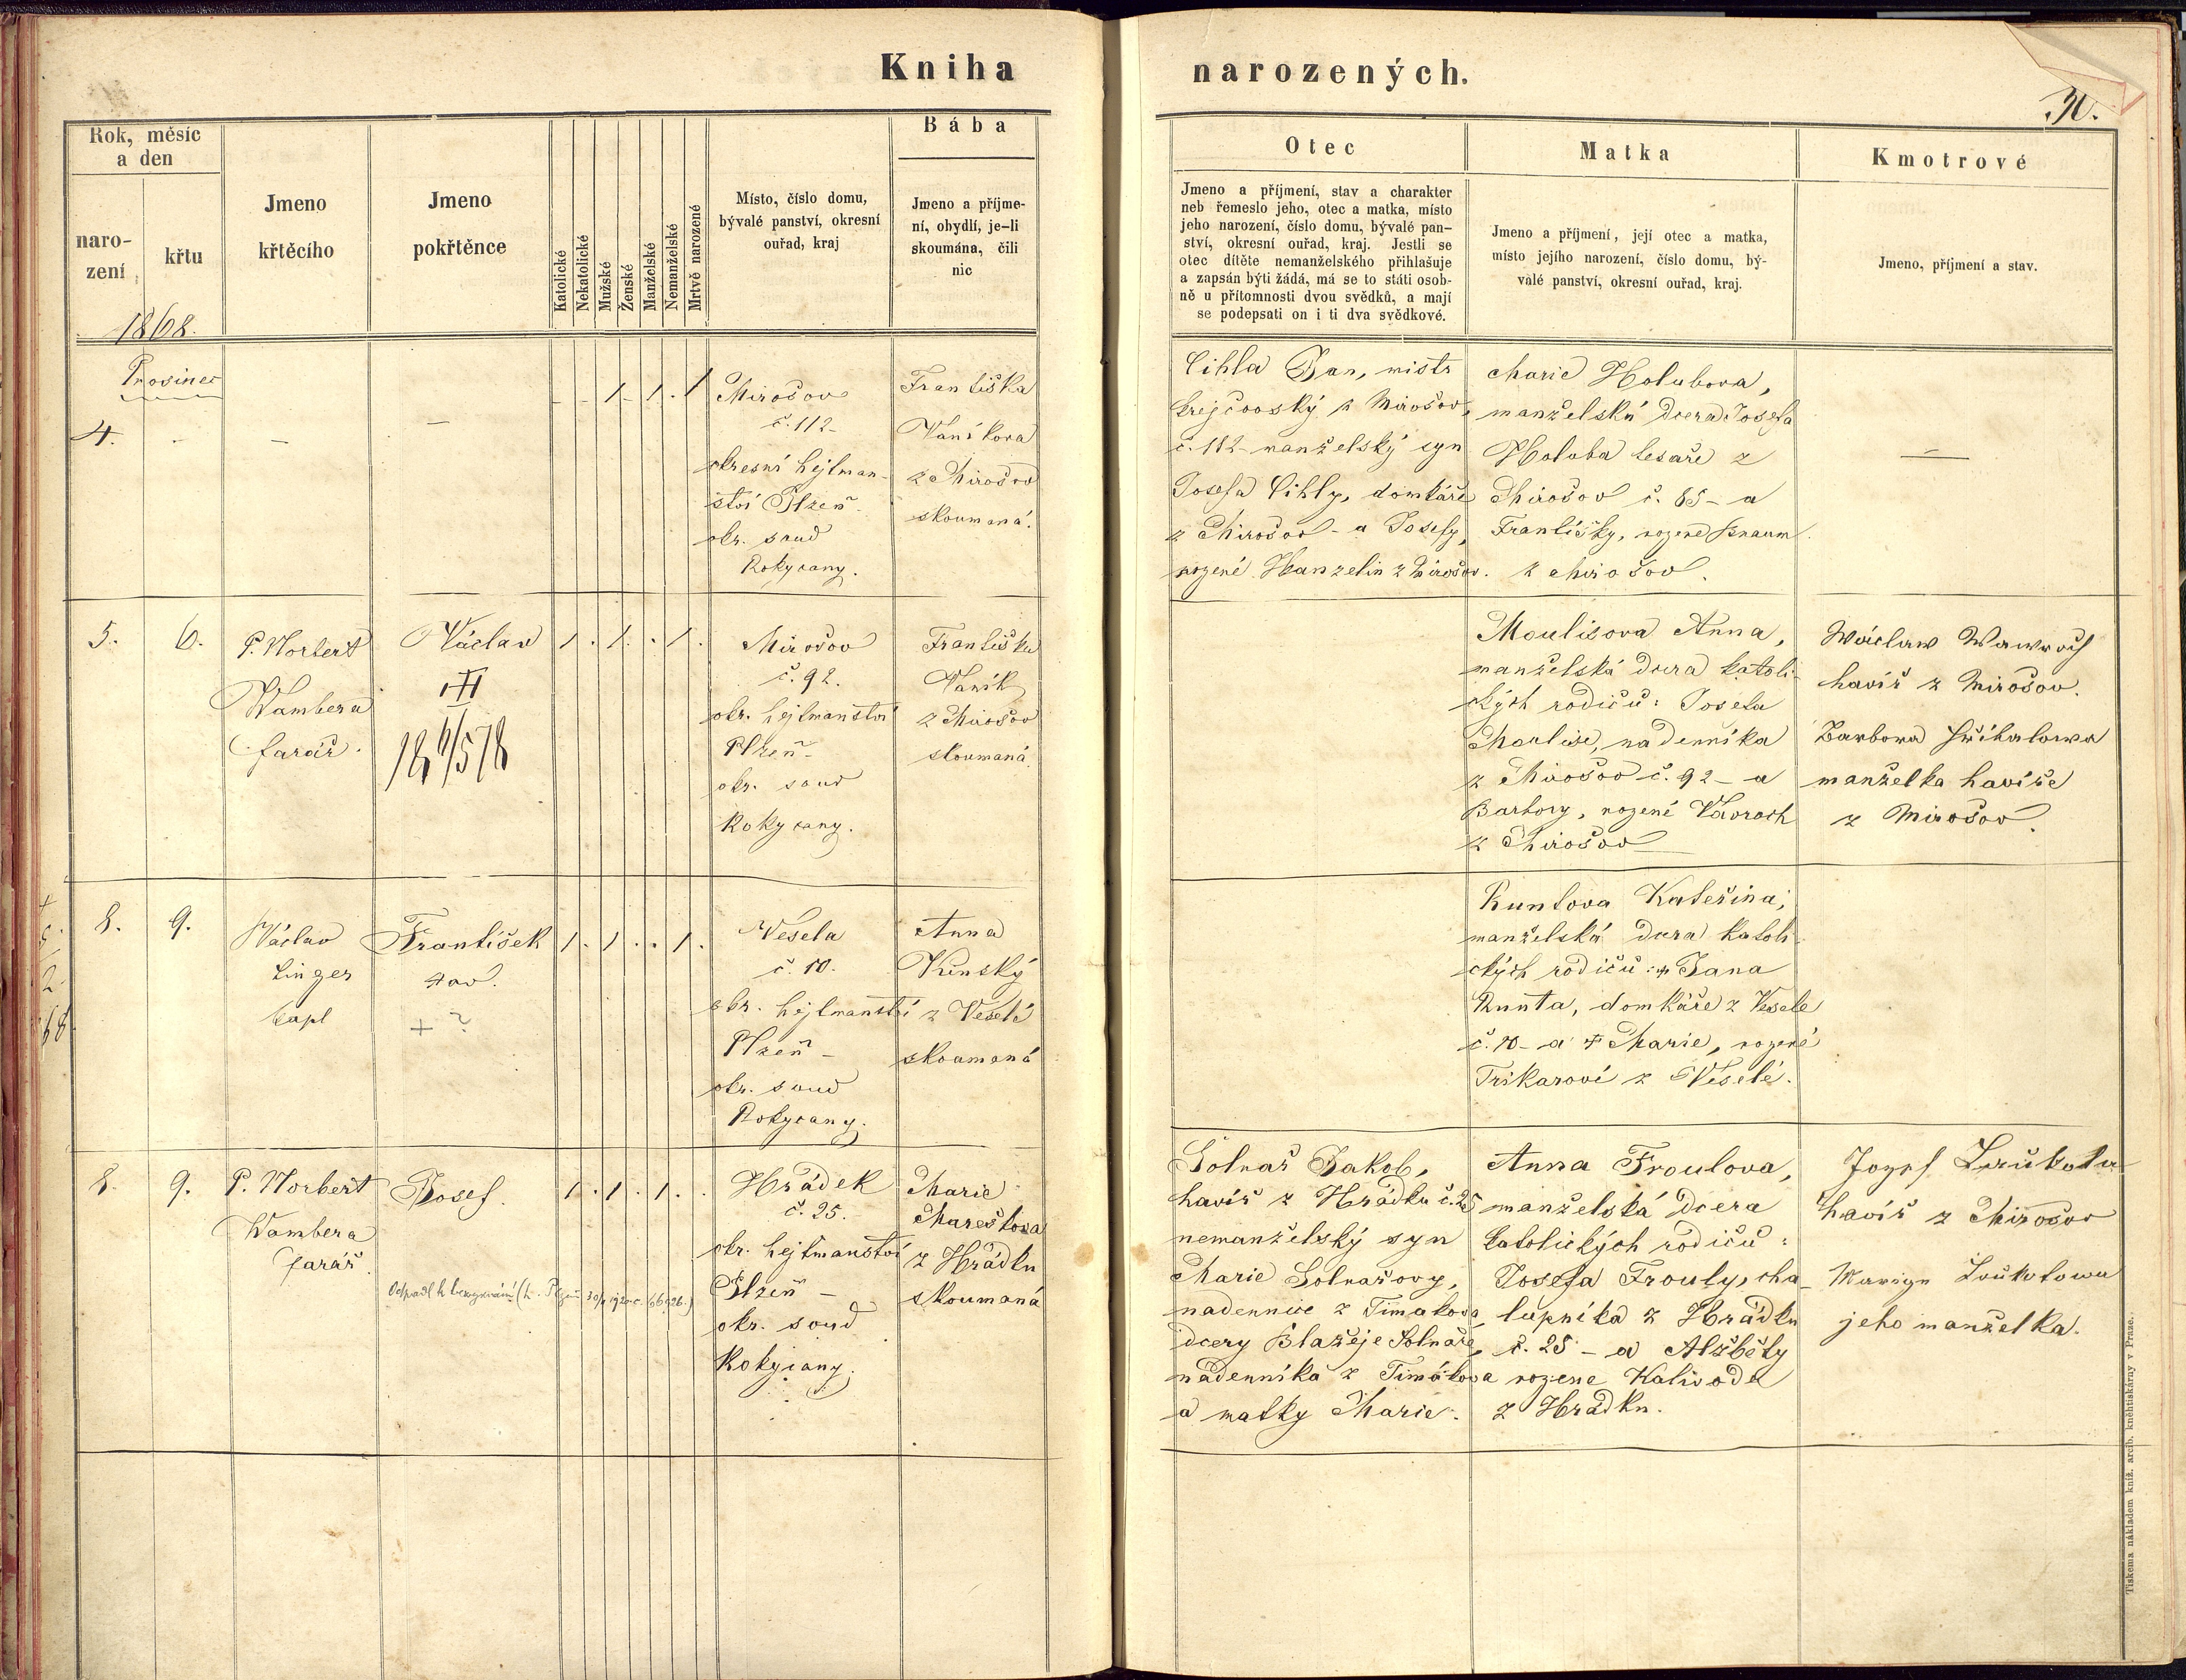 Kniha
narozených.
Rok, měsíc
a den
naro-
zení
křtu
1868.
Jmeno
křtěcího
Jmeno
pokřtěnce
Katolické
Nekatolické
Mužské
Ženské
Manželské
Nemanželské
Mrtvě narozené
Místo, číslo domu,
bývalé panství, okresní
ouřad, kraj
Bába
Jmeno a příjme-
ní, obydlí, je-li
skoumána, čili
nic
Otec
Jmeno a příjmení, stav a charakter
neb řemeslo jeho, otec a matka, místo
jeho narození, číslo domu, bývalé pan-
ství, okresní ouřad, kraj. Jestli se
otec dítěte nemanželského přihlašuje
a zapsán býti žádá, má se to státi osob-
ně u přítomnosti dvou svědků, a mají
se podepsati on i ti dva svědkové.
Matka
Jmeno a příjmení, její otec a matka,
místo jejího narození, číslo domu, bý-
valé panství, okresní ouřad, kraj.
Kmotrové
Jmeno, příjmení a stav.
Prosinec
4. - - -
- - 1 - 1 . 1
Mirošov
č. 112-
okresní hejtman-
ství Plzeň-
okr. soud
Rokycany.
Františka
Vaníkova
z Mirošov
skoumaná.
Cihla Jan, mistr
krejčovský z Mirošov,
č. 112- manželský syn
Josefa Cihly, domkáře
z Mirošov - a Josefy,
rozené Hanzelin z Mirošov.
Marie Holubova,
manželská dcera Josefa
Holuba tesaře z
Mirošov č. 85- a
Františky, rozené
z Mirošov.
5. 6.
P. Norbert
Wambera
farář.
Václav
1 . 1 . . 1 .
Mirošov
č. 92.
okr. hejtmanství
Plzeň-
okr. soud
Rokycany.
Františka
Vaník
z Mirošov
skoumaná.
Moulisova Anna,
manželská dcera katoli-
ckých rodičů: Josefa
Moulise, nadenníka
z Mirošov č. 92- a
Barbory, rozené Vavroch
z Mirošov
Wáclaw Wawroch
havíř z Mirošov.
Barbora
manželka havíře
z Mirošov.
8. 9.
Václav
Linger
kapl
František
+ ?
1 . 1 . . 1 .
Vesela
č. 10.
okr. hejtmanství
Plzeň-
okr. soud
Rokycany.
Anna
Kunský
z Veselé
skoumaná
Runtova Kateřina;
manželská dcera katoli-
ckých rodičů: + Jana
Runta, domkáře z Vesele
č. 10- a + Marie, rozené
Trikarové z Veselé.
8. 9.
P. Norbert
Wambera
farář.
Josef.
1 . 1 . 1 . .
Hrádek
č. 25.
okr. hejtmanství
Plzeň -
okr. soud
Rokycany.
Marie
Marešova
z Hrádku
skoumaná
Solnař Jakob,
havíř z Hrádku č. 25
nemanželský syn
Marie Solnařovy,
nadennice z Timakova,
dcery Blažeje Solnaře,
nádenníka z Timákova
a matky Marie.
Anna Froulova,
manželská dcera
katolických rodičů:
Josefa Frouly, cha-
lupníka z Hrádku
č. 25 - a Alžběty
rozene Kalivoda
z Hrádku.
Jozef
havíř z Mirošov
Loukotowa
jeho manželka.
Tiskem a nákladem kníž. arcib. kněhtiskárny v Praze.